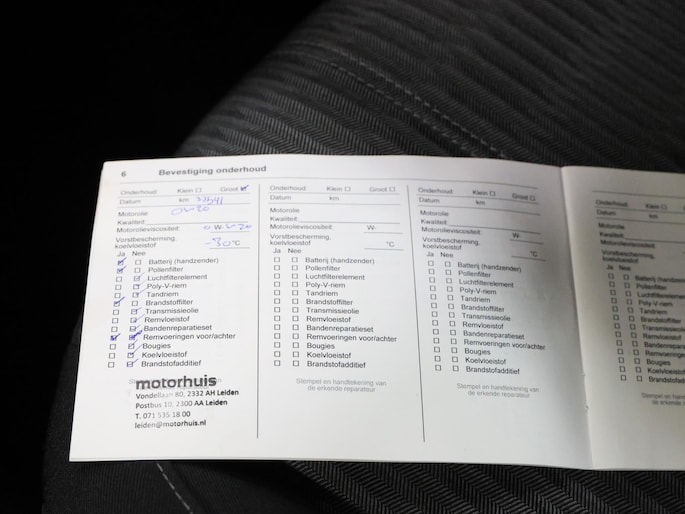 6 Bevestiging onderhoud
Onderhoud: Klein ☐ Groot ☑
Datum km
Motorolie
Kwaliteit:
Motorolieviscositeit: 0 W- 20
Vorstbescherming,
koelvloeistof -30 °C
Ja Nee
☑ ☐ Batterij (handzender)
☑ ☐ Pollenfilter
☐ ☑ Luchtfilterelement
☐ ☑ Poly-V-riem
☐ ☑ Tandriem
☑ ☐ Brandstoffilter
☐ ☑ Transmissieolie
☐ ☑ Remvloeistof
☐ ☑ Bandenreparatieset
Remvoeringen voor/achter
☐ ☑ Bougies
☐ ☑ Koelvloeistof
☐ ☑ Brandstofadditief
motorhuis
Vondellaan 80, 2332 AH Leiden
Postbus 10, 2300 AA Leiden
T. 071 535 18 00
leiden@motorhuis.nl
Onderhoud: Klein ☐ Groot ☐
Datum km
Motorolie
Kwaliteit:
Motorolieviscositeit: W-
Vorstbescherming,
koelvloeistof °C
Ja Nee
☐ ☐ Batterij (handzender)
☐ ☐ Pollenfilter
☐ ☐ Luchtfilterelement
☐ ☐ Poly-V-riem
☐ ☐ Tandriem
☐ ☐ Brandstoffilter
☐ ☐ Transmissieolie
☐ ☐ Remvloeistof
☐ ☐ Bandenreparatieset
☐ ☐ Remvoeringen voor/achter
☐ ☐ Bougies
☐ ☐ Koelvloeistof
☐ ☐ Brandstofadditief
Stempel en handtekening van
de erkende reparateur
Onderhoud: Klein ☐ Groot ☐
Datum km
Motorolie
Kwaliteit:
Motorolieviscositeit: W-
Vorstbescherming,
koelvloeistof °C
Ja Nee
☐ ☐ Batterij (handzender)
☐ ☐ Pollenfilter
☐ ☐ Luchtfilterelement
☐ ☐ Poly-V-riem
☐ ☐ Tandriem
☐ ☐ Brandstoffilter
☐ ☐ Transmissieolie
☐ ☐ Remvloeistof
☐ ☐ Bandenreparatieset
☐ ☐ Remvoeringen voor/achter
☐ ☐ Bougies
☐ ☐ Koelvloeistof
☐ ☐ Brandstofadditief
Stempel en handtekening van
de erkende reparateur
Onderhoud:
Datum
Motorolie
Kwaliteit:
Motorolieviscositeit:
Vorstbescherming,
koelvloeistof
Ja Nee
☐ ☐ Batterij (handzender)
☐ ☐ Pollenfilter
☐ ☐ Luchtfilterelement
☐ ☐ Poly-V-riem
☐ ☐ Tandriem
☐ ☐ Brandstoffilter
☐ ☐ Transmissieolie
☐ ☐ Remvloeistof
☐ ☐ Bandenreparatieset
☐ ☐ Remvoeringen
☐ ☐ Bougies
☐ ☐ Koelvloeistof
☐ ☐ Brandstofadditief
Stempel en handtekening
de erkende reparateur